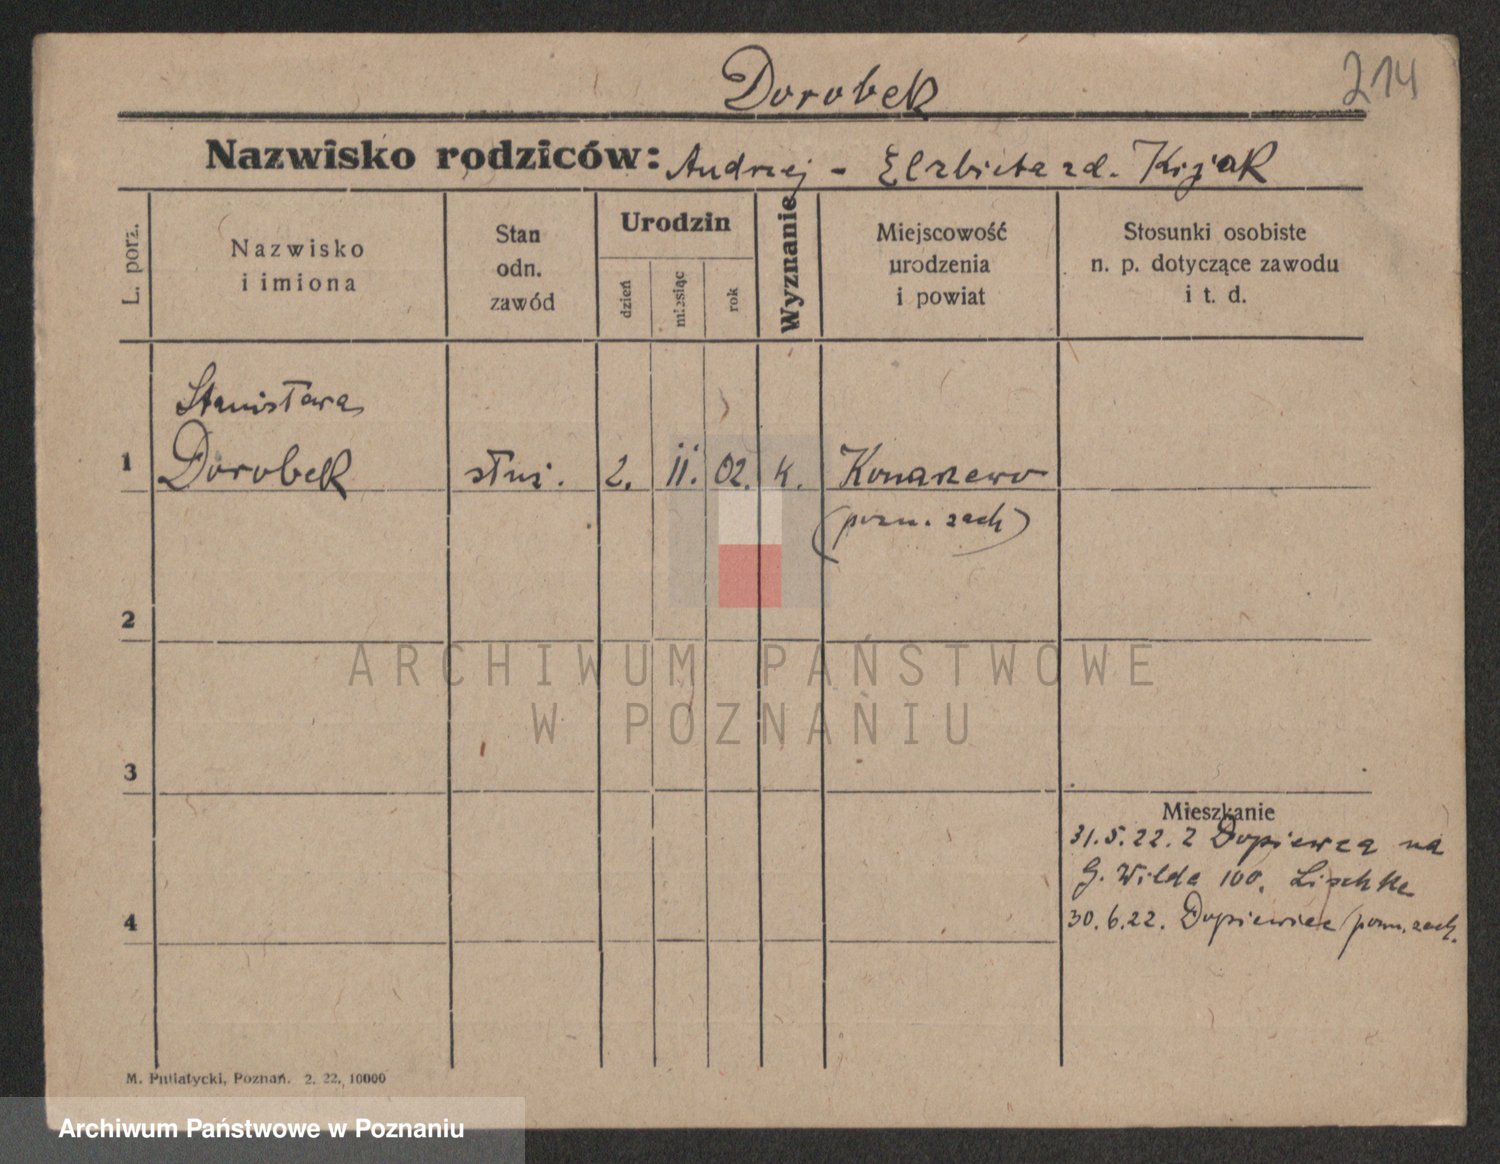 Dorobek
214
Nazwisko rodziców: Andrzej - Elzbieta zd. Kijak
L. porz.
Nazwisko
i imiona
Stan
odn.
zawód
Urodzin
dzień
miesiąc
rok
Wyznanie
Miejscowość
urodzenia
i powiat
Stosunki osobiste
n. p. dotyczące zawodu
i t. d.
Stanisława
1 Dorobek służ. 2. 11. 02. k. Konarzewo
(pozn. zach)
2
ARCHIWUM PAŃSTWOWE
W POZNANIU
3
Mieszkanie
31.5.22. z Dopiewca na
G. Wilda 100.
4
30.6.22. Dopiewiec (pozn. zach.
M. Putiatycki, Poznań. 2. 22. 10000
Archiwum Państwowe w Poznaniu